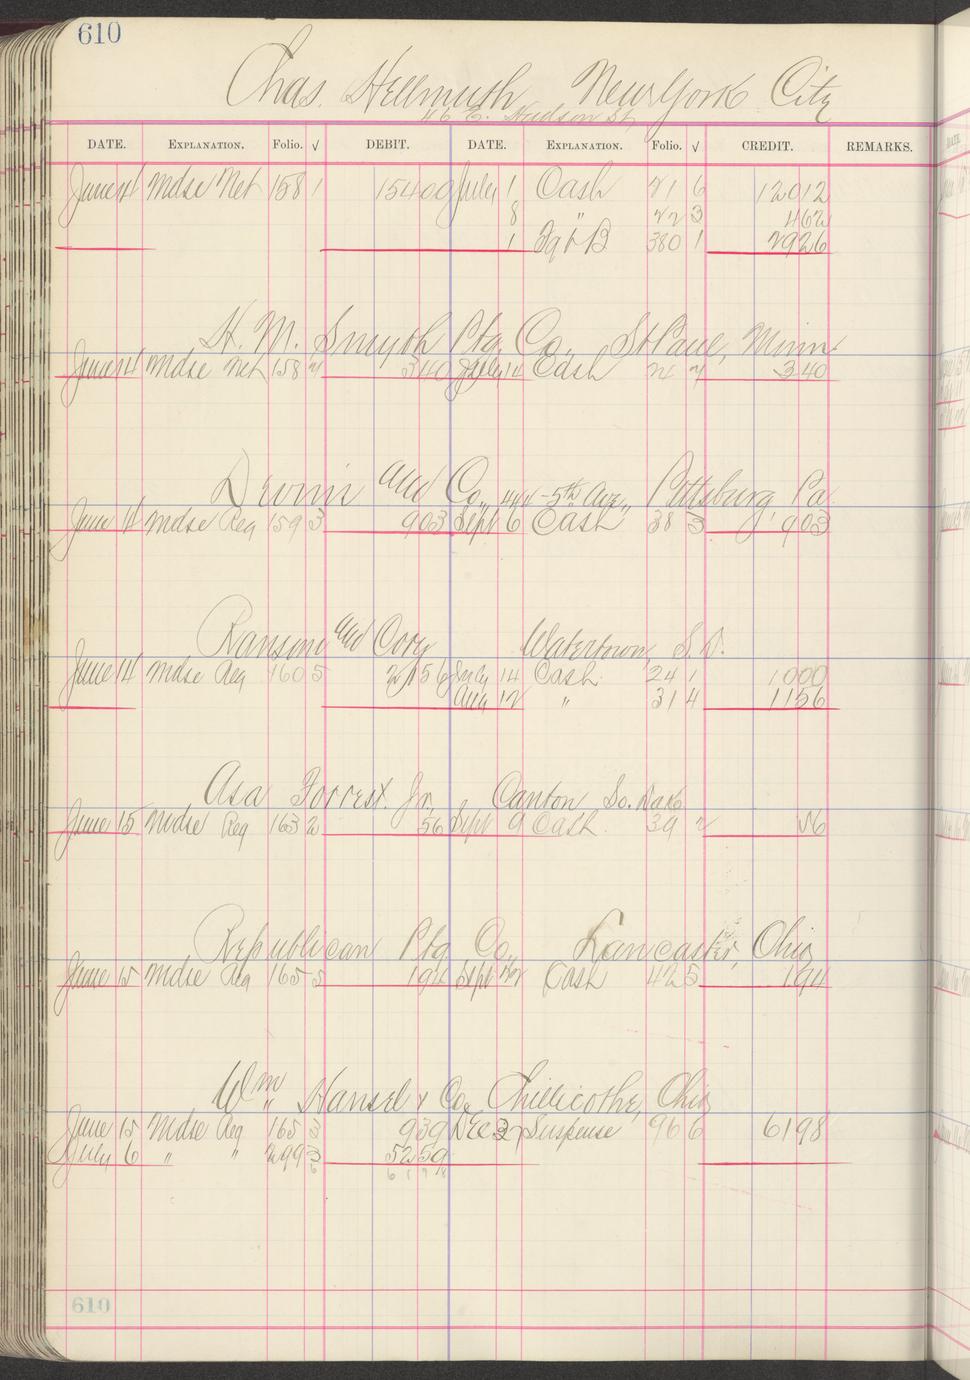 610
Chas. Hellmuth New York City
46 E. Hudson St.
DATE. EXPLANATION. Folio. √ DEBIT. DATE. EXPLANATION. Folio. √ CREDIT. REMARKS.
June 14 Mdse Net 158 1 15400 July 1 Cash 21 6 12012
8 " 22 3 462
1 380 1 2926
H. M. Smyth Ptg. Co., St Paul, Minn.
June 14 Mdse Net 158 2 340 July 14 Cash 24 340
Devin and Co., 444-5th Ave., Pittsburg, Pa
June 14 Mdse Reg 159 3 903 Sept 6 Cash 38 3 903
Ransom and Corey Watertown, S.D.
June 14 Mdse Reg 160 5 2156 July 14 Cash 24 1 1000
Aug 12 " 31 4 1156
Asa Forrest. Jr., Canton So. Dako
June 15 Mdse Reg 163 2 56 Sept 9 Cash 39 2 56
Republican Ptg Co., Lancaster, Ohio
June 15 Mdse Reg 165 5 194 Sept 22 Cash 42 5 194
Wm Hansel & Co., Chillicothe, Ohio
June 15 Mdse Reg 165 939 Dec 32 Suspense 96 6 6198
July 6 " " 299 5259
6198
610